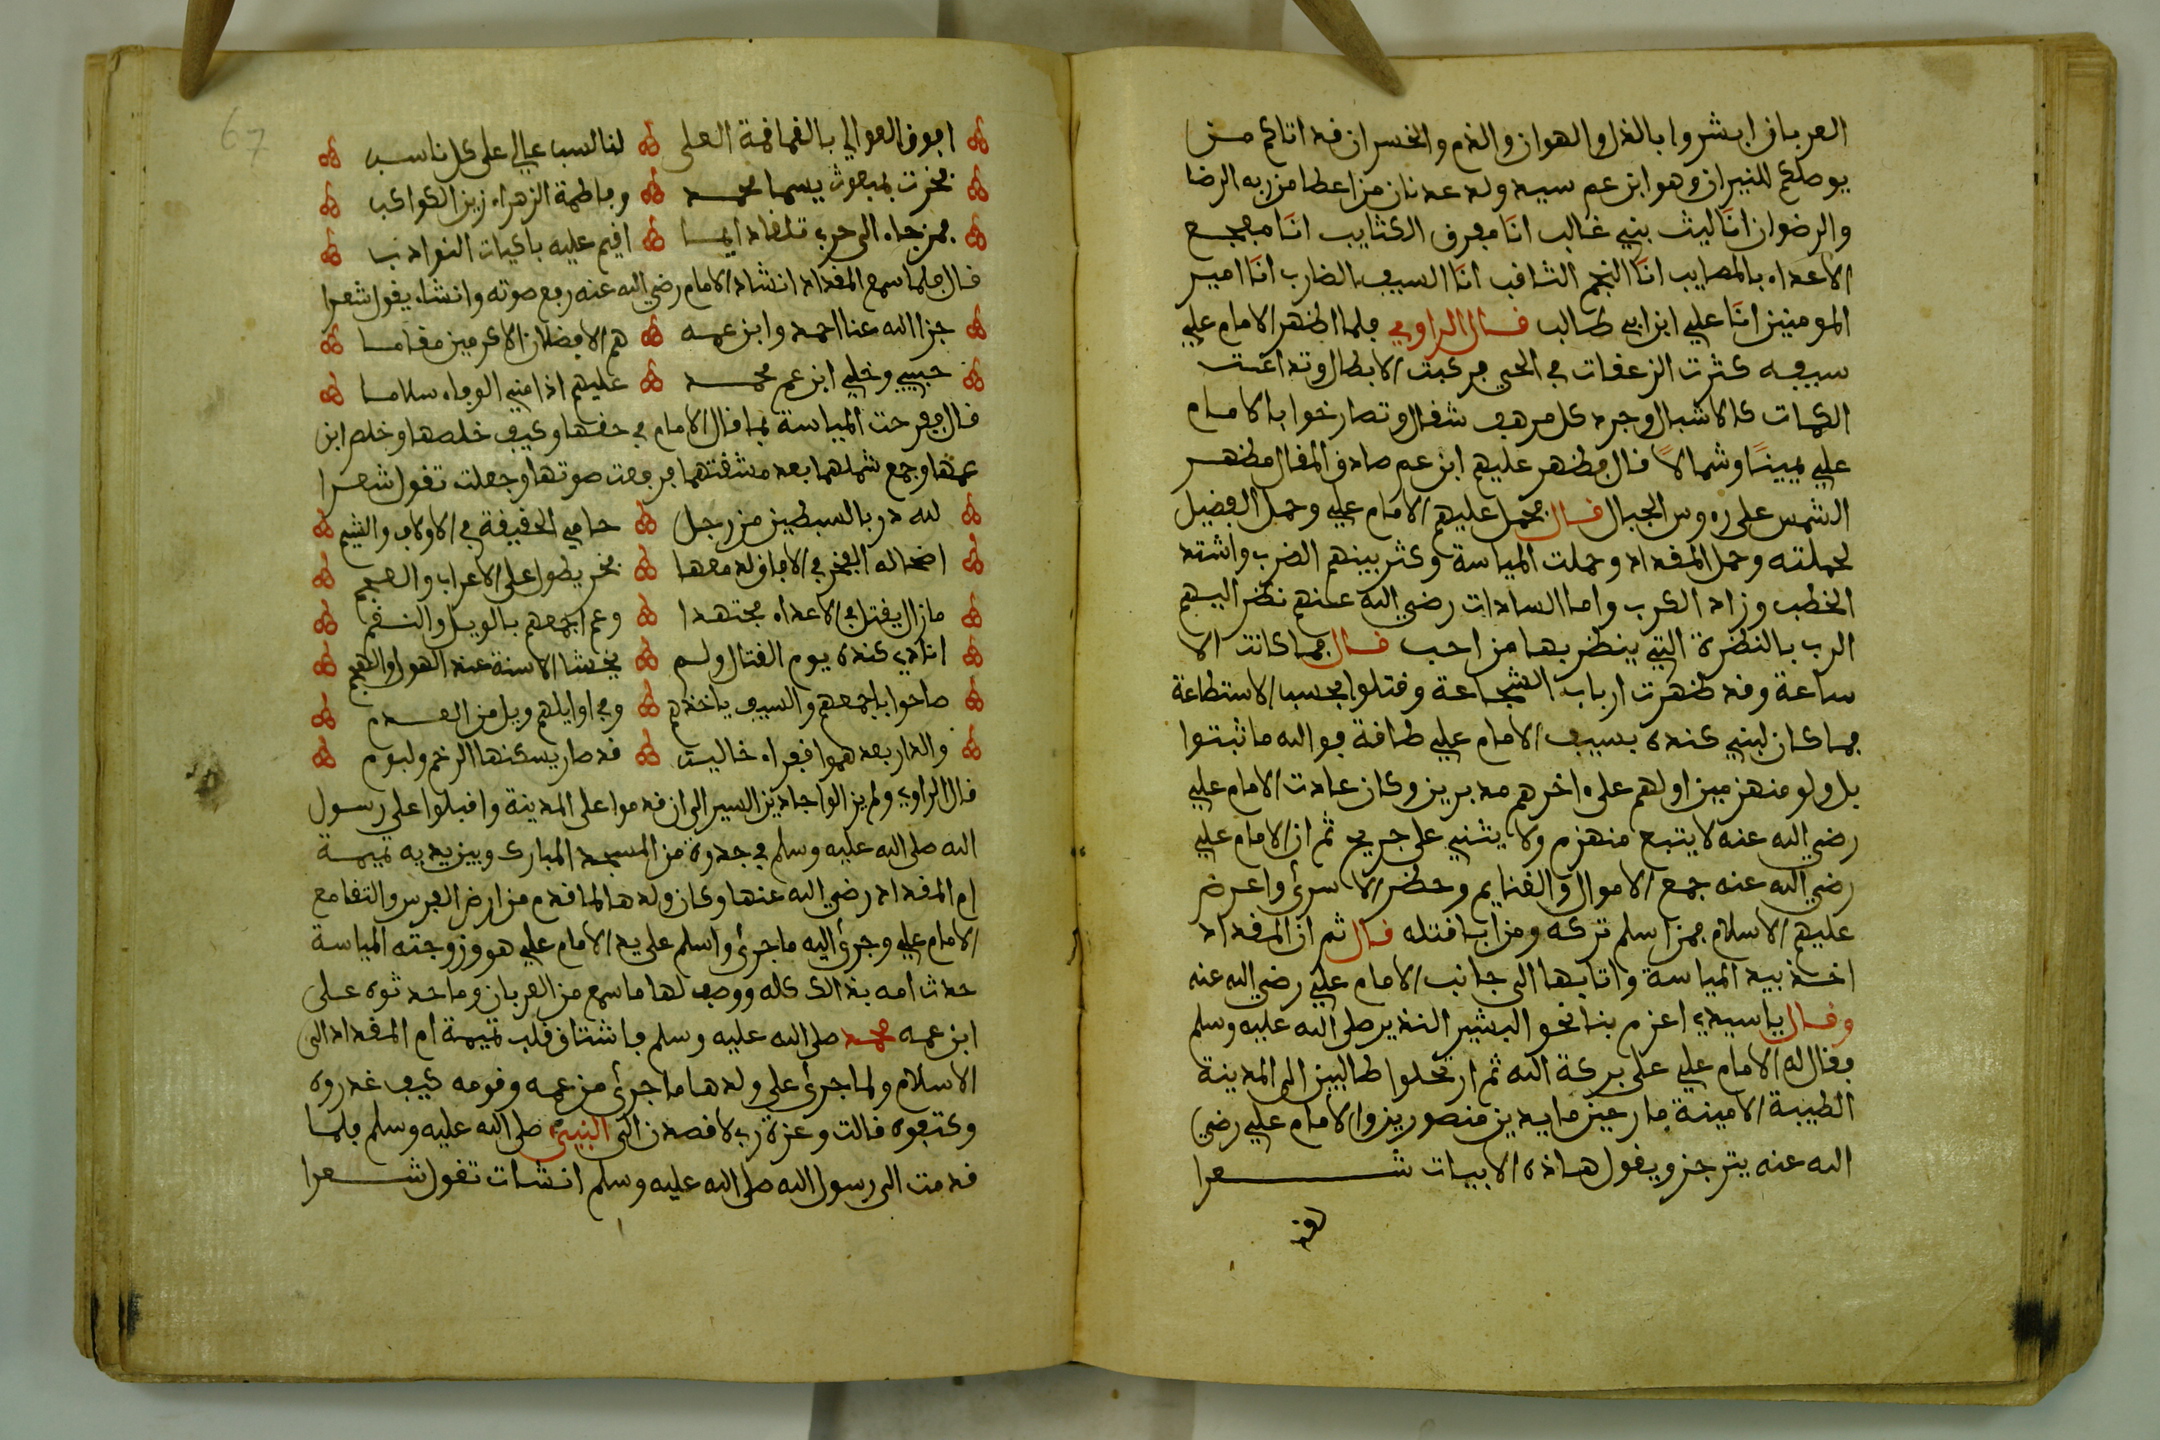 العربان ابشروا بالذل والهوان والذم والخسران قد اتاكم من
يوصلكم للنيران وهو ابن عم سيد ولد عدنان من اعطا من ربه الرضا
والرضوان انا ليث بني غالب انا مفرق الكتايب انا مفجع
الاعداء بالمصايب انا النجم الثاقب انا السيف الضارب انا امير
المومنين انا علي ابن ابي طالب قال الراوي فلما اظهر الامام علي
سيفه كثرت الزعقات في الحي فركبت الابطال وتداعت
الكمات كالاشبال وجرد كل مرهف شغال وتصارخوا بالامام
علي يمينًا وشمالًا قال فظهر عليهم ابن عم صادق المقال مظهر
الشمس على رءوس الجبال قال فحمل عليهم الامام علي وحمل الفضيل
لحملته وحمل المقداد وحملت المياسة وكثر بينهم الضرب واشتد
الخطب وزاد الكرب واما السادات رضي الله عنهم نظر اليهم
الرب بالنظرة التي ينظر بها من احب قال فما كانت الا
ساعة وقد ظهرت ارباب الشجاعة وقتلوا بحسب الاستطاعة
فما كان لبني كنده بسيف الامام علي طاقة فوالله ما ثبتوا
بل ولو منهزمين اولهم على ءاخرهم مدبرين وكان عادت الامام علي
رضي الله عنه لا يتبع منهزم ولا يثني على جريح ثم ان الامام علي
رضي الله عنه جمع الاموال والغنايم وحظر الاسرى واعرض
عليهم الاسلام فمن اسلم تركه ومن ابا قتله قال ثم ان المقداد
اخذ بيد المياسة واتا بها الى جانب الامام علي رضي الله عنه
وقال يا سيدي اعزم بنا نحو البشير النذير صلى الله عليه وسلم
فقال له الامام علي على بركة الله ثم ارتحلوا طالبين الى المدينة
الطيبة الامينة فارحين مايدين منصورين والامام علي رضي
الله عنه يترجز ويقول هاذه الابيات شعرا
افوق العوالي بالفهافهة العلى لنا السب عالي على كل ناسب
فخرت بمبعوث يسما محمد وفاطمة الزهراء زين الكواكب
فمن جاء الى حرب تلقاد ايما اقيم عليه باكيات النوادب
قال فلما سمع المقداد انشاد الامام رضي الله عنه رفع صوته وانشاء يقول شعرا
جزا الله عنا احمد وابن عمه هم الافضلان الاكرمين مقاما
حبيبي وخلي ابن عم محمد عليهم اذا مني الوفاء سلاما
قال ففرحت المياسة بما قال الامام في حقها وكيف خلصها وخلص ابن
عمها وجمع شملهما بعد مشقتهما فرفعت صوتها وجعلت تقول شعرا
لله در بالسبطين من رجل حامي الحقيقة في الاولاف والشيم
اضحا له الفخر في الافاق له معها فخر يطول على الاعراب والعجم
مازال يقتل في الاعداء مجتهدا وعم اجمعهم بالويل والنقم
انادي كنده يوم القتال ولم يخشا الاسنة عند الهول والهجم
صاحوا باجمعهم والسيف ياخذهم وفي اوايلهم ويل من العدم
والدار بعدهموا قفراء خاليت قد صار يسكنها الرخم ولبوم
قال الراوي ولم يزالوا جادين السير الى ان قدموا على المدينة واقبلوا على رسول
الله صلى الله عليه وسلم في جدوة من المسجد المبارك وبين يديه تميمة
ام المقداد رضي الله عنها وكان ولدها لما قدم من ارض الفرس والتقا مع
الامام علي وجرى اليه ما جرى واسلم على يد الامام علي هو وزوجته المياسة
حدث امه بذالك كله ووصف لها ما سمع من العربان وما حدثوه على
ابن عمه محمد صلى الله عليه وسلم فاشتاق قلب تميمة ام المقداد الى
الاسلام ولما جرى على ولدها ما جرى من عمه وقومه كيف غدروه
وكتفوه قالت وعزة رب لاقصدن الى النبي صلى الله عليه وسلم فلما
قدمت الى رسول الله صلى الله عليه وسلم انشات تقول شعرا
67